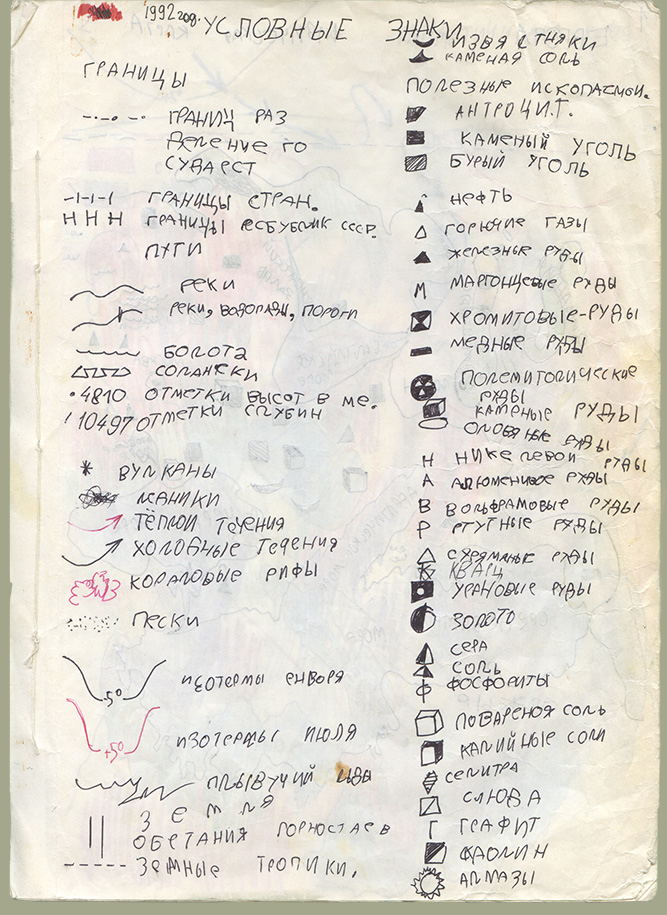 1992 год. УСЛОВНЫЕ ЗНАКИ
ГРАНИЦЫ
ГРАНИЦ РАЗ
ДЕЛЕНИЕ ГО
СУДАРСТ
ГРАНИЦЫ СТРАН.
ГРАНИЦЫ РЕСБУБЛИК СССР.
ПУТИ
РЕКИ
РЕКИ, ВОДОПАДЫ, ПОРОГИ
БОЛОТА
СОЛАНЧКИ
.4810 ОТМЕТКИ ВЫСОТ В МЕ.
10497 ОТМЕТКИ ГЛУБИН
ВУЛКАНЫ
ТЁПЛЫИ ТЕЧЕНИЯ
ХОЛОДНЫЕ ТЕЧЕНИЯ
КОРАЛОВЫЕ РИФЫ
ПЕСКИ
-5° ИЗОТЕРМЫ ЕНВОРЯ
+5° ИЗОТЕРМЫ ИЮЛЯ
ПЛЫВУЧИЙ ЛЬДЫ
ЗЕМЛЯ
ОБЕТАНИЯ ГОРНОСТАЕВ
ЗЕМНЫЕ ТРОПИКИ.
ИЗВЯСТНЯКИ
КАМЕНАЯ СОЛЬ
ПОЛЕЗНЫЕ ИСКОПАЕМЫИ.
АНТРОЦИТ.
КАМЕНЫЙ УГОЛЬ
БУРЫЙ УГОЛЬ
НЕФТЬ
ГОРЮЧИЕ ГАЗЫ
ЖЕЛЕЗНЫЕ РУДЫ
М МАРГОНЦЕВЫЕ РУДЫ
ХРОМИТОВЫЕ-РУДЫ
МЕДНЫЕ РУДЫ
ПОЛЕМИТОЛИЧЕСКИЕ
РУДЫ
КАМЕНЫЕ РУДЫ
ОЛОВЯНЫЕ РУДЫ
Н НИКЕЛЕВОЙ РУДЫ
А АЛЮМЕНИВЫЕ РУДЫ
В ВОЛЬФРАМОВЫЕ РУДЫ
Р РТУТНЫЕ РУДЫ
СУРЯМАНЫЕ РУДЫ
КВАРЦ
УРАНОВЫЕ РУДЫ
ЗОЛОТО
СЕРА
СОЛЬ
ФОСФОРИТЫ
ПОВАРЕНОЯ СОЛЬ
КАЛИЙНЫЕ СОЛИ
СЕЛИТРА
СЛЮДА
Г ГРАФИТ
КАОЛИН
АЛМАЗЫ